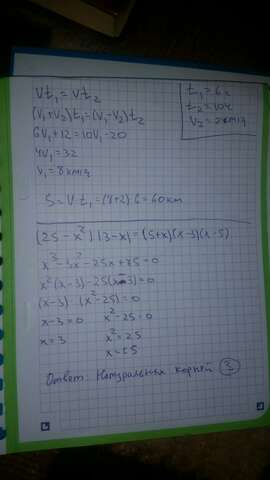 Vt₁ = Vt₂
(V₁+V₂)t₁=(V₁-V₂)t₂
6V₁+12=10V₁-20
4V₁=32
V₁=8км/ч
t₁=6ч
t₂=10ч
V₂=2км/ч
S=Vt₁=(8+2)·6=60км
(25-x²)(3-x)=(5+x)(x-3)(x-5)
x³-3x²-25x+75=0
x²(x-3)-25(x-3)=0
(x-3)·(x²-25)=0
x-3=0 x²-25=0
x=3 x²=25
x=±5
Ответ: Натуральных корней